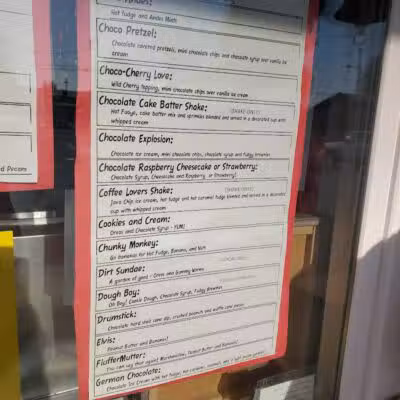 Hot Fudge and Andes Mints
Choco Pretzel:
Chocolate covered pretzel, mini chocolate chips and chocolate syrup over vanilla ice
cream
Choco-Cherry Love:
Wild Cherry topping, mini chocolate chips over vanilla ice cream
Chocolate Cake Batter Shake:
Hot Fudge, cake batter mix and sprinkles blended and served in a decorated cup with
whipped cream
Chocolate Explosion:
Chocolate ice cream, mini chocolate chips, chocolate syrup and fudgy brownies
Chocolate Raspberry Cheesecake or Strawberry:
Chocolate Syrup, Cheesecake and Raspberry or Strawberry!
Coffee Lovers Shake:
Java Chip ice cream, hot fudge and hot caramel fudge blended and served in a decorated
cup with whipped cream
Cookies and Cream:
Oreos and Chocolate Syrup - YUM!
Chunky Monkey:
Go bananas for Hot Fudge, Banana, and Nuts
Dirt Sundae:
A garden of good - Oreos and Gummy Worms
Dough Boy:
Oh Boy! Cookie Dough, Chocolate Syrup, Fudgy Brownies
Drumstick:
Chocolate hard shell cone dip, crushed peanuts and waffle cone pieces
Elvis:
Peanut Butter and Bananas!
FlufferMutter:
You can say that again! Marshmallow, Peanut Butter and Bananas!
German Chocolate:
Chocolate Ice Cream with hot fudge, hot caramel, coconut, and
d Pecans